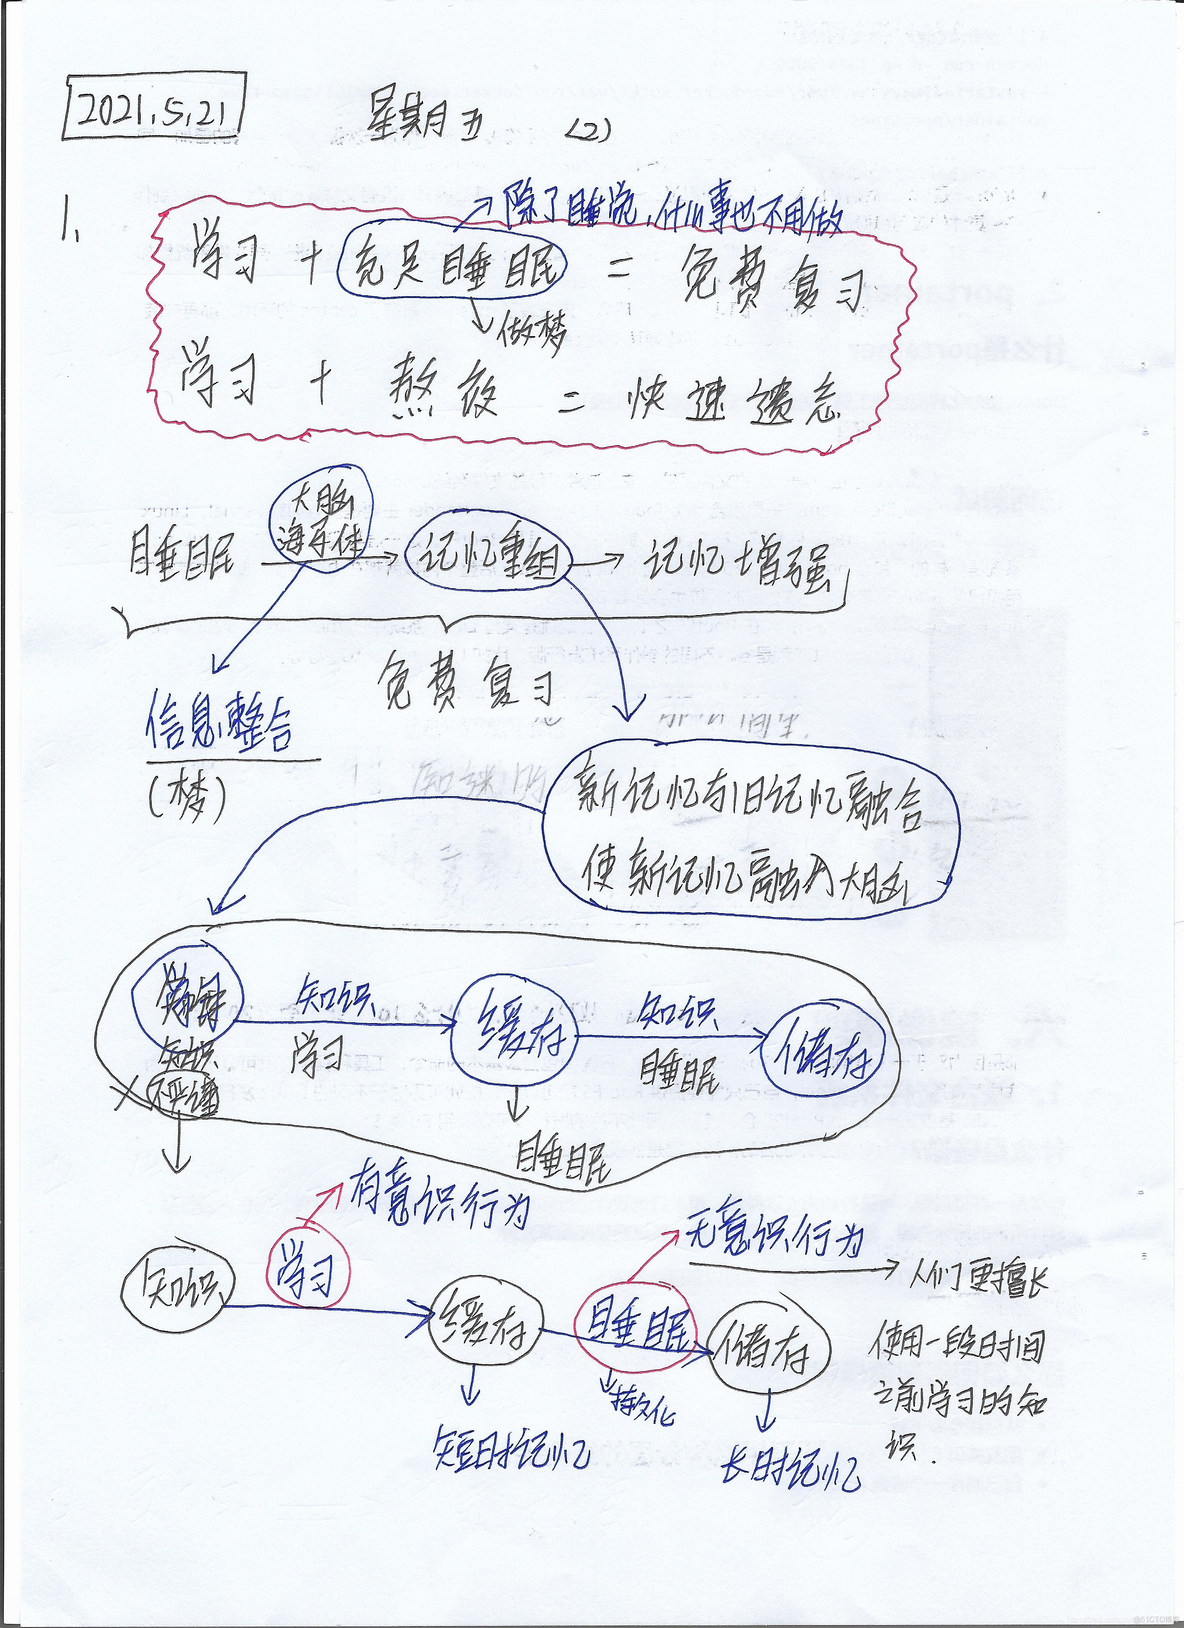 2021.5.21 星期五 (2)
1、
除了睡觉、什么事也不用做
学习 + 充足睡眠 = 免费复习
做梦
学习 + 熬夜 = 快速遗忘
大脑
海马体
睡眠 记忆重组 记忆增强
免费复习
信息整合
(梦)
新记忆与旧记忆融合
使新记忆融入大脑
知识 知识
缓存 储存
知识 学习 睡眠
不严谨
睡眠
有意识行为
无意识行为
知识 学习 人们更擅长
缓存 睡眠 储存 使用一段时间
持久化 之前学习的知
短时记忆 长时记忆 识.
@51CTO博客